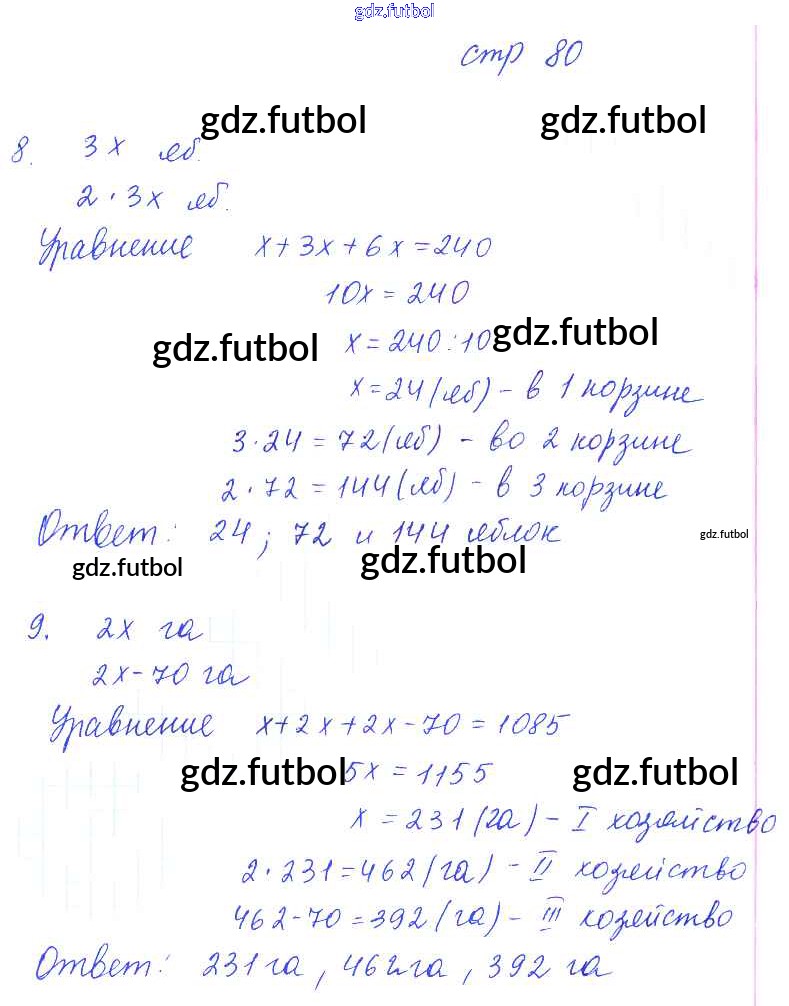 gdz.futbol
стр 80
gdz.futbol gdz.futbol
8. 3x яб.
2 · 3x яб.
Уравнение x + 3x + 6x = 240
10x = 240
gdz.futbol x = 240 : 10 gdz.futbol
x = 24 (яб) - в 1 корзине
3 · 24 = 72 (яб) - во 2 корзине
2 · 72 = 144 (яб) - в 3 корзине
Ответ: 24 ; 72 и 144 яблок
gdz.futbol
gdz.futbol gdz.futbol
9. 2x га
2x - 70 га
Уравнение x + 2x + 2x - 70 = 1085
gdz.futbol 5x = 1155 gdz.futbol
x = 231 (га) - I хозяйство
2 · 231 = 462 (га) - II хозяйство
462 - 70 = 392 (га) - III хозяйство
Ответ: 231 га , 462 га , 392 га